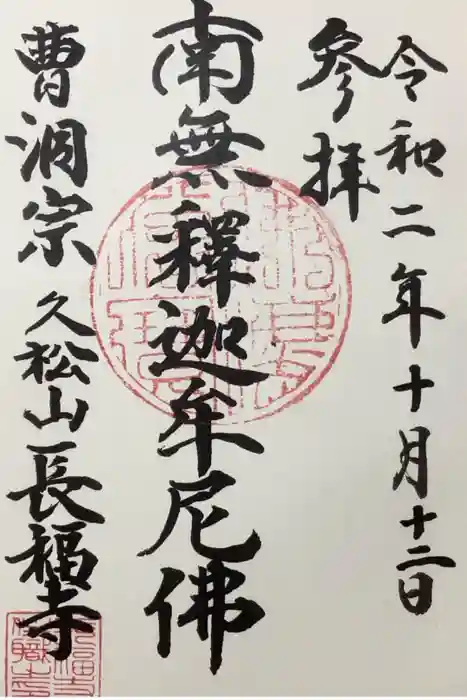 令和二年十月十二日
参拝
南無釋迦牟尼佛
曹洞宗 久松山長福寺